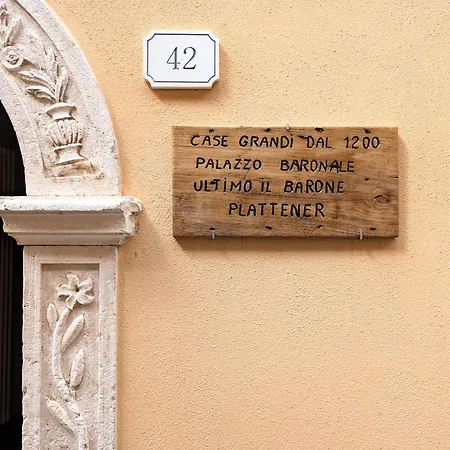 42
CASE GRANDI DAL 1200
PALAZZO BARONALE
ULTIMO IL BARONE
PLATTENER